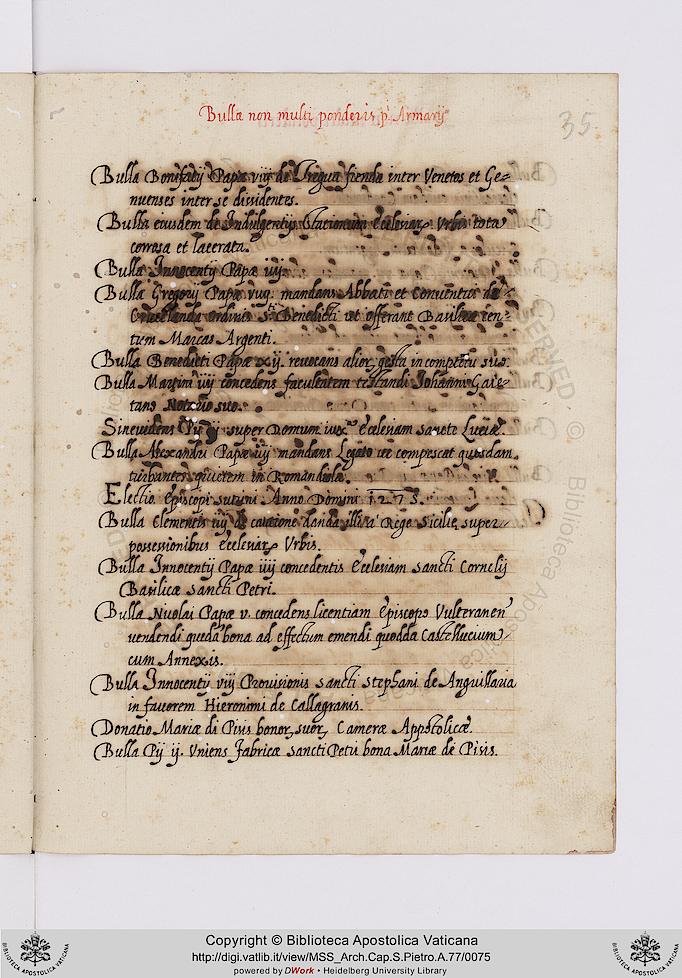 Bullæ non multi ponderis p.i Armarij
35
Bulla Bonifatij Papæ viij de Tregua fienda inter Venetos et Ge=
nuenses inter se dividentes.
Bulla eiusdem de Indulgentijs Stationum Ecclesiar Urbis tota
corrosa et lacerata.
Bulla Innocentij Papæ iiij.
Bulla Gregorij Papæ mandans Abbati et Conventui de
ordinis S.ti Benedicti ut offerant Basilicæ cen=
tum Marcas Argenti.
Bulla Benedicti Papæ xij. revocans alior gesta in comptotu suo.
Bulla Martini iiij concedens facultatem testandi Iohanni Gaie=
tano Notario suo.
Pij ij super Domum iuxa Ecclesiam sancte Luciæ.
Bulla Alexandri Papæ iiij mandans Legato ut compescat quosdam
turbantes quietem in Romandiola.
Electio Episcopi sutrini Anno Domini 1275.
Bulla Clementis iiij de cautione danda Rege Sicilie super
possessionibus Ecclesiar Urbis.
Bulla Innocentij Papæ iiij concedentis Ecclesiam sancti Cornelij
Basilicæ sancti Petri.
Bulla Nicolai Papæ v. concedens licentiam Episcopo Vulteranen
vendendi quedā bona ad effectum emendi quodda Castellucium
cum Annexis.
Bulla Innocentij viij Provisionis sancti Stephani de Anguillaria
in favorem Hieronimi de Callagranis.
Donatio Mariæ di Pisis bonor suor Cameræ Appostolicæ.
Bulla Pij ij. Uniens Fabricæ sancti Petri bona Mariæ de Pisis.
Copyright © Biblioteca Apostolica Vaticana
http://digi.vatlib.it/view/MSS_Arch.Cap.S.Pietro.A.77/0075
powered by DWork • Heidelberg University Library